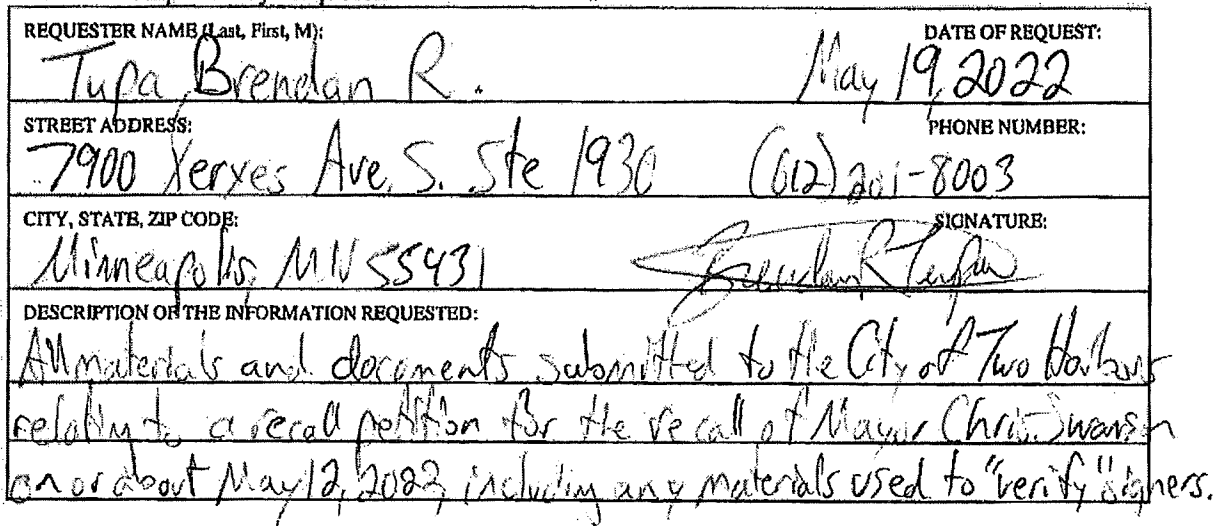 REQUESTER NAME (Last, First, M): DATE OF REQUEST:
Tupa, Brendan R. May 19, 2022
STREET ADDRESS: PHONE NUMBER:
7900 Xerxes Ave. S. Ste 1930 (612) 201-8003
CITY, STATE, ZIP CODE: SIGNATURE:
Minneapolis, MN 55431 Brendan R Tupa
DESCRIPTION OF THE INFORMATION REQUESTED:
All materials and documents submitted to the City of Two Harbors
relating to a recall petition for the recall of Mayor Chris Swanson
on or about May 12, 2022, including any materials used to "verify" signers.